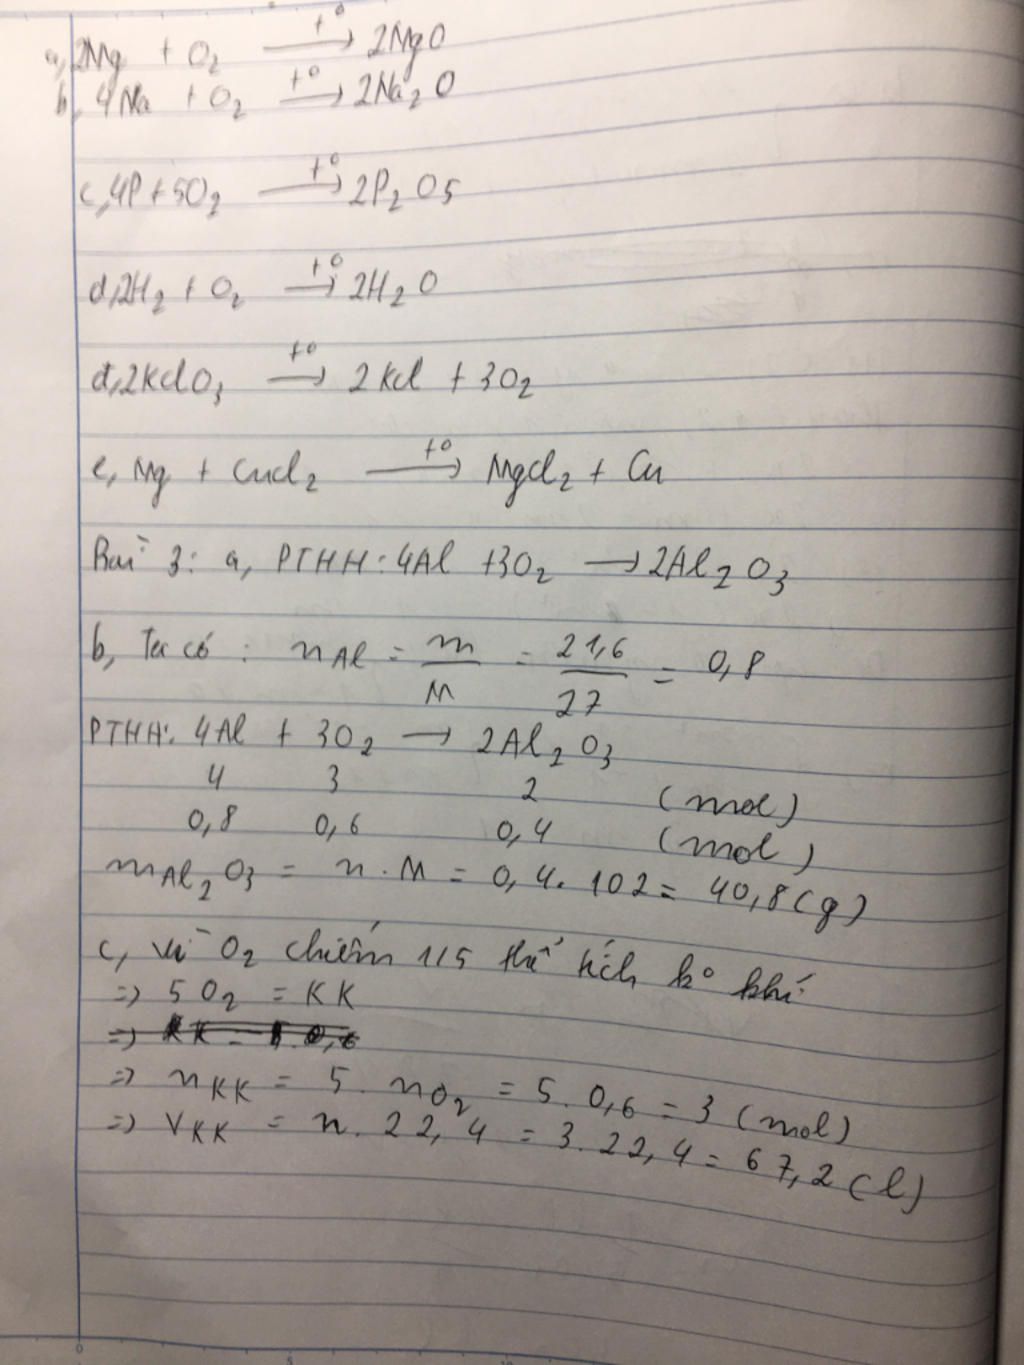 a, 2Mg + O₂ —t°→ 2MgO
b, 4Na + O₂ —t°→ 2Na₂O
c, 4P + 5O₂ —t°→ 2P₂O₅
d, 2H₂ + O₂ —t°→ 2H₂O
đ, 2KClO₃ —t°→ 2KCl + 3O₂
e, Mg + CuCl₂ —t°→ MgCl₂ + Cu
Bài 3: a, PTHH: 4Al + 3O₂ → 2Al₂O₃
b, Ta có : nAl = m/M = 21,6/27 = 0,8
PTHH: 4Al + 3O₂ → 2Al₂O₃
4 3 2 (mol)
0,8 0,6 0,4 (mol)
mAl₂O₃ = n . M = 0,4 . 102 = 40,8 (g)
c, vì O₂ chiếm 1/5 thể tích ko khí
=> 5 O₂ = KK
=> nKK = 5 . nO₂ = 5 . 0,6 = 3 (mol)
=> VKK = n . 22,4 = 3 . 22,4 = 67,2 (l)
0 5 10